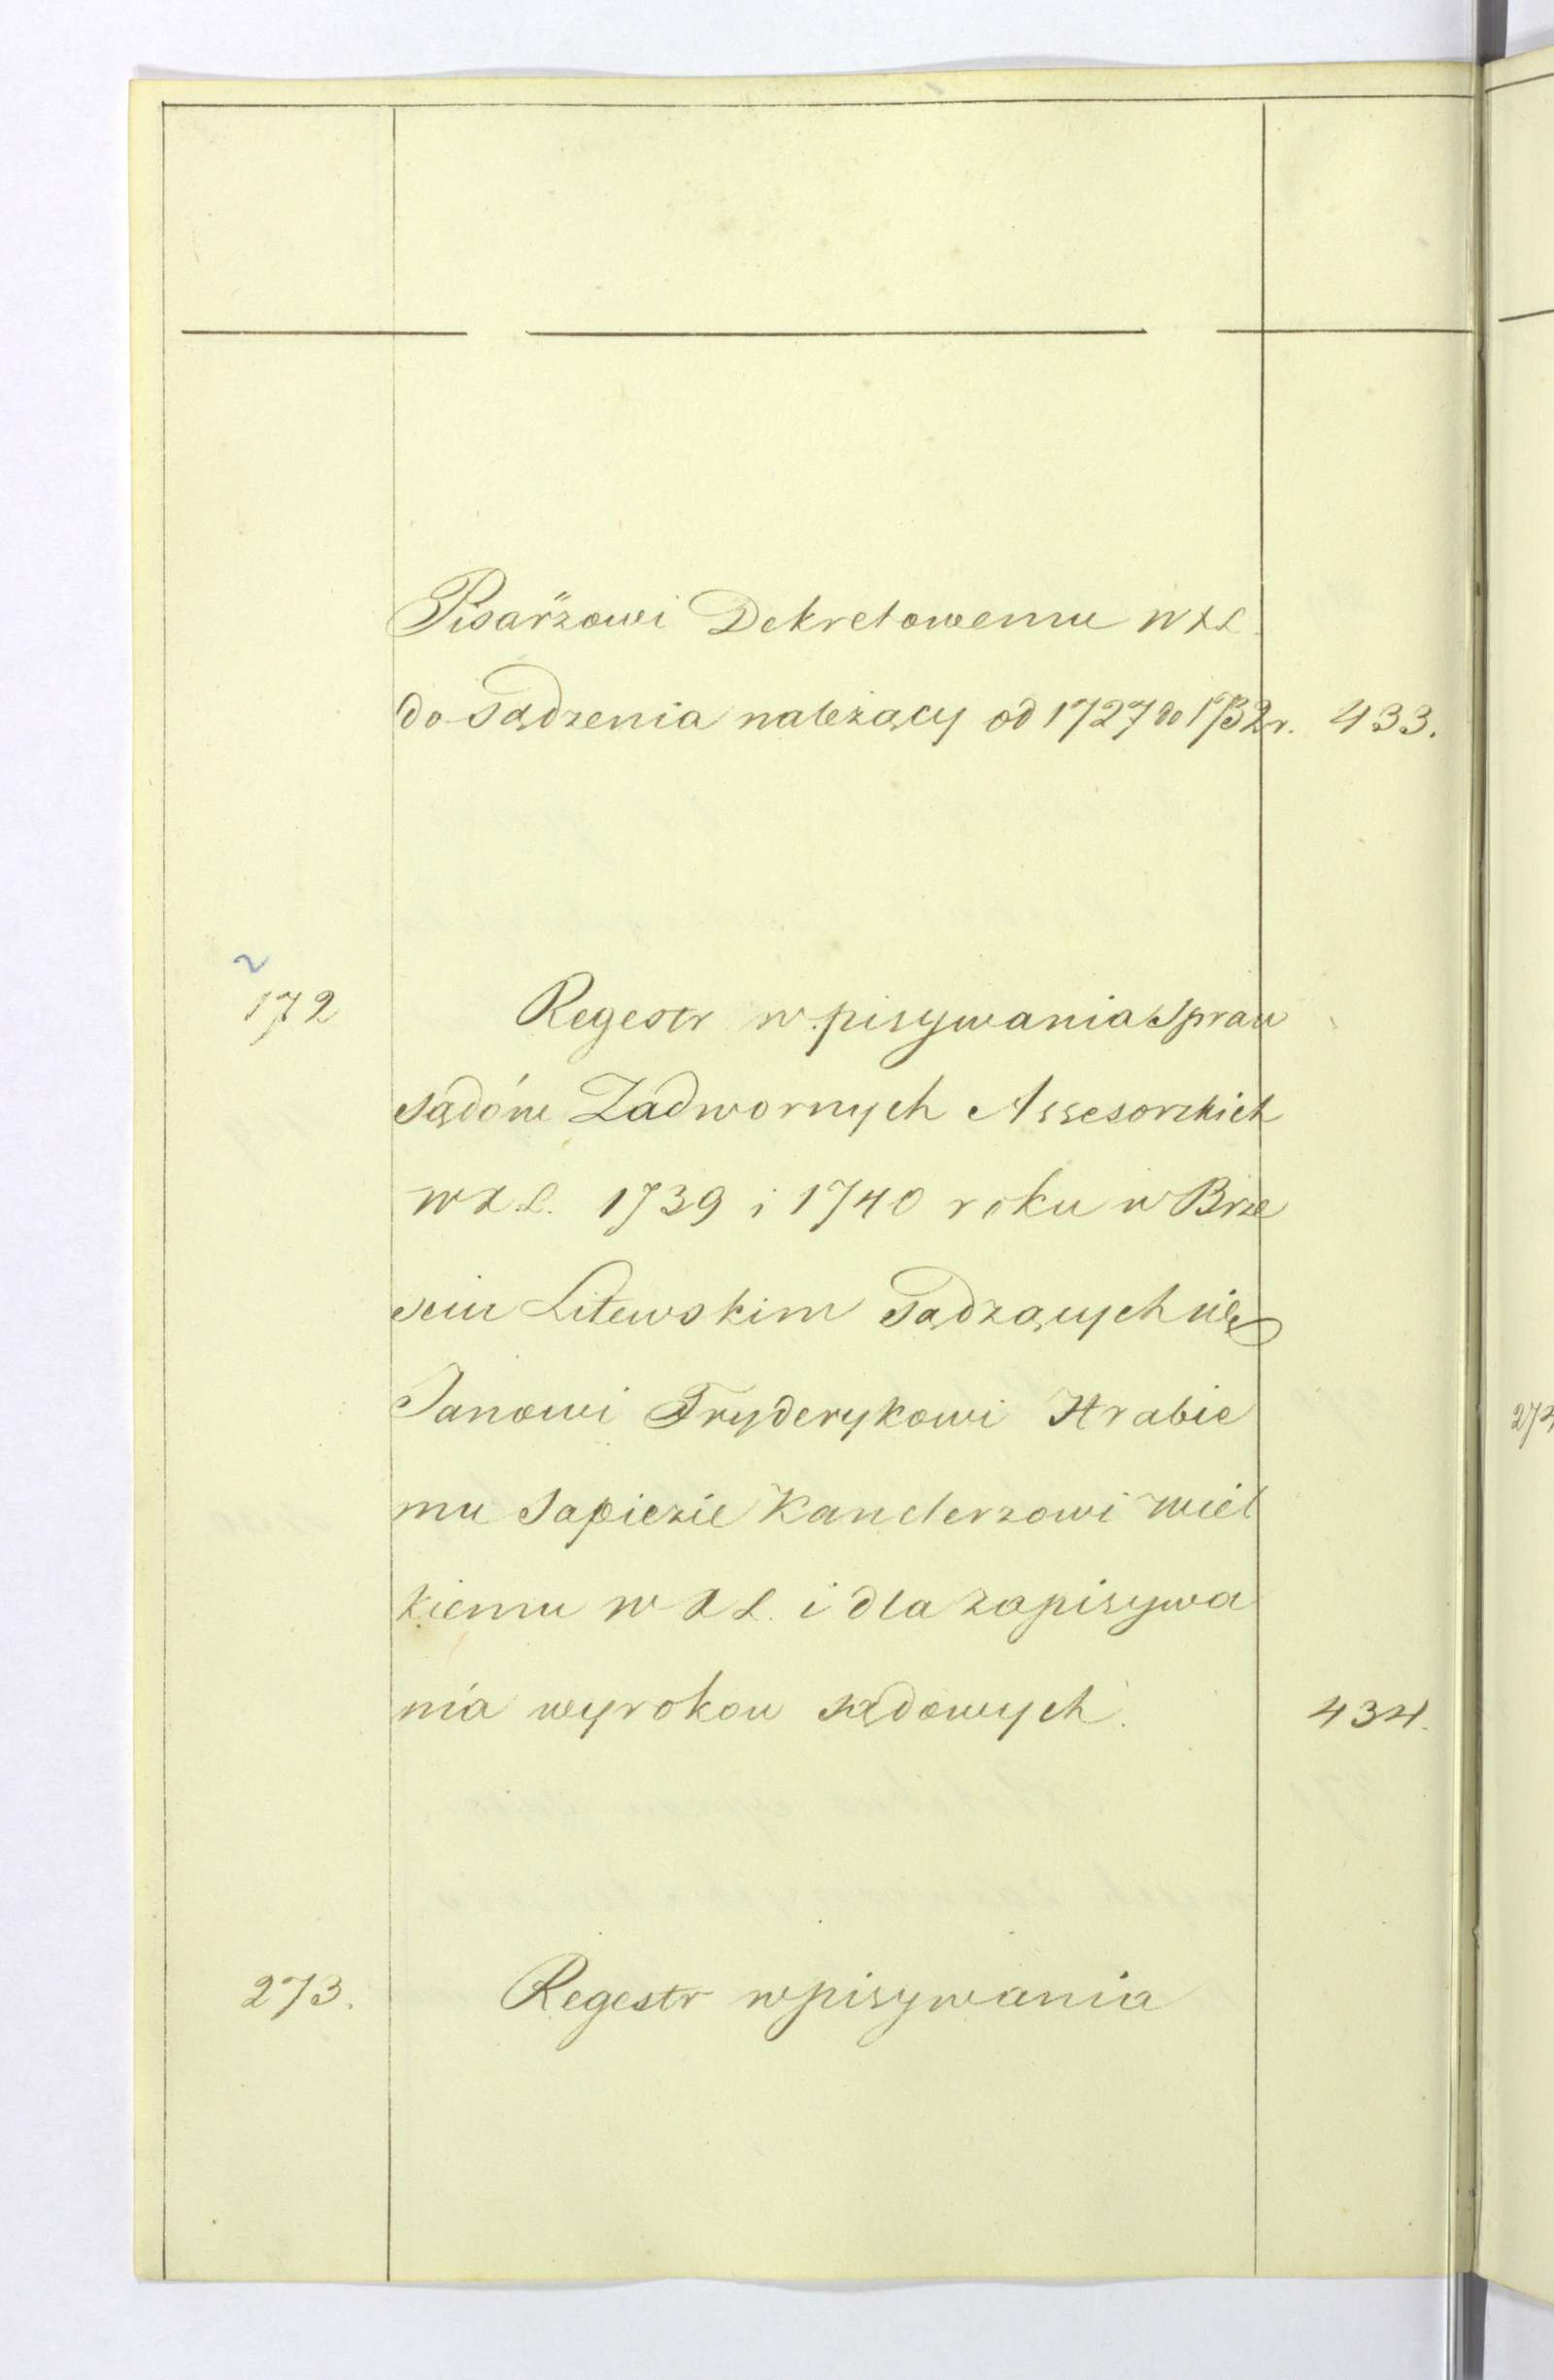 Pisarzowi Dekretowemu W X L.
do Sądzenia należący od 1727 do 1732 r. 433.
2
172 Regestr wpisywania Spraw
sądów Zadwornych Assesorskich
W X. L. 1739 i 1740 roku w Brze
sciu Litewskim Sądzących się
Janowi Fryderykowi Hrabie
mu Sapiezie Kanclerzowi Wiel
kiemu W X L. i dla zapisywa
nia wyrokow sądowych. 434.
273. Regestr wpisywania